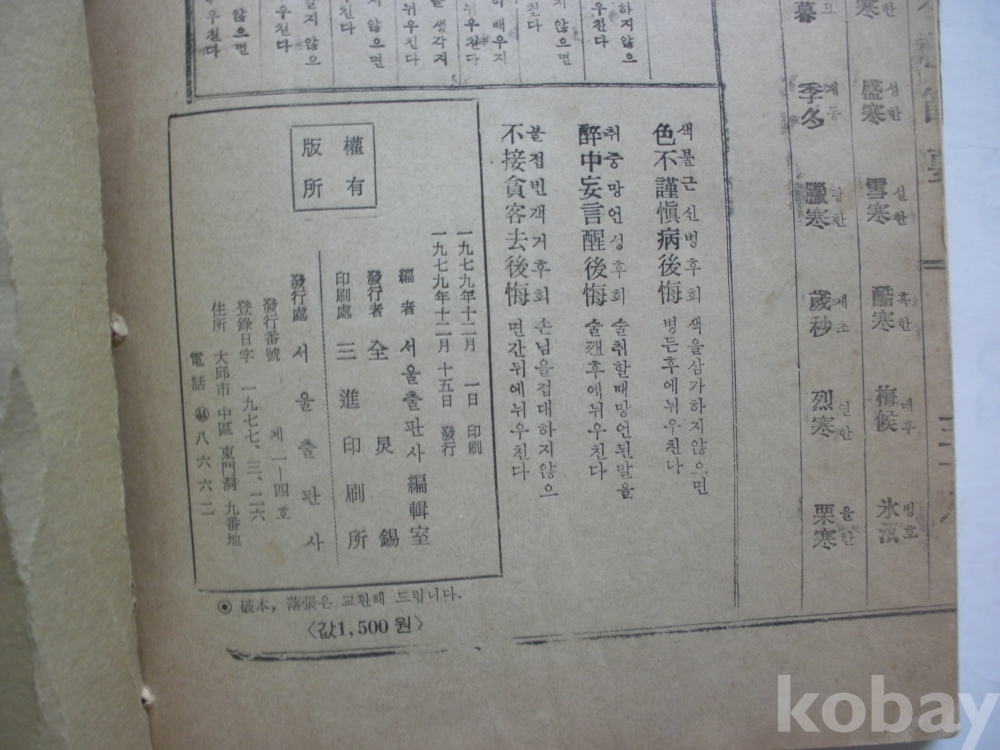 寒 한
盛寒 성한
雪寒 설한
酷寒 혹한
梅候 매후
氷沍 빙호
暮 모
季冬 계동
臘寒 납한
歲秒 세초
烈寒 열한
栗寒 율한
하지않으
우친다
지 않으면
우친다
히 배우지
뉘우친다
생각지
뉘우친다
지 않으면
친다
하지 않으
우친다
않으면
우친다
색불근신병후회
色不謹愼病後悔 색을삼가하지않으면
병든후에뉘우친다
취중망언성후회
醉中妄言醒後悔 술취할때망언된말을
술깬후에뉘우친다
불접빈객거후회
不接賓客去後悔 손님을접대하지않으
면간뒤에뉘우친다
版權
所有
一九七九年十二月 一日 印刷
一九七九年十二月 十五日 發行
編者 서울출판사編輯室
發行者 全炅錫
印刷處 三進印刷所
發行處 서울출판사
發行番號 제一－四호
登錄日字 一九七七、三、二六
住所 大邱市 中區 東門洞 九番地
電話 ㊹ 八六六二
◉ 破本, 落張은 교환해 드립니다.
〈값1,500원〉
kobay